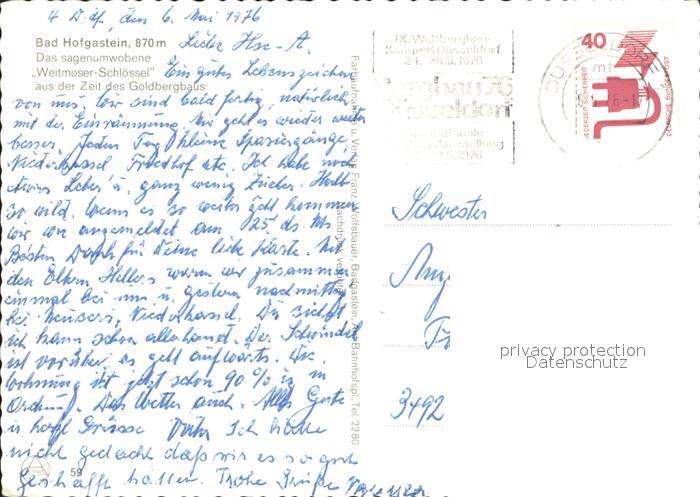 4 D-df, den 6. Mai 1976
Bad Hofgastein, 870 m
Das sagenumwobene
„Weitmoser-Schlössel"
aus der Zeit des Goldbergbaus
Liebe Hse-A.
Ein gutes Lebenszeichen
von uns. Wir sind bald fertig, natürlich
mit der Einräumung. Mir geht es wieder
besser. Jeden Tag kleine Spaziergänge,
Niederkassel Friedhof etc. Ich habe noch
Leber u. ganz wenig Zucker. Halb
so wild. Wenn es so weiter geht kommen
wir wie angemeldet am 25. ds. Mts.
Besten Dank für Deine liebe Karte. Mit
den Eltern Hellers waren wir zusammen
einmal bei uns u. gestern nachmittag
bei Niederkassel. Du siehst
ich kann schon allerhand. Der Schwindel
ist vorüber, es geht aufwärts. Die
Wohnung ist jetzt schon 90 % ig in
Ordnung. Das Wetter auch. Alles Gute
u. herzl Grüsse Vater Ich hätte
nicht gedacht daß wir es so gut
geschafft hätten. Frohe Grüße
59
Farbaufnahme u. Verlag Franz Wolfsbauer, Badgastein, Am Bahnhofspl., Tel. 2280
Nachdruck verboten
IX. Weltbergbau-
Kongreß Düsseldorf
24.-28.5.1976
DÜSSELDORF
40
JEDERZEIT SICHERHEIT
DEUTSCHE BUNDESPOST
Schwester
3492
privacy protection
Datenschutz